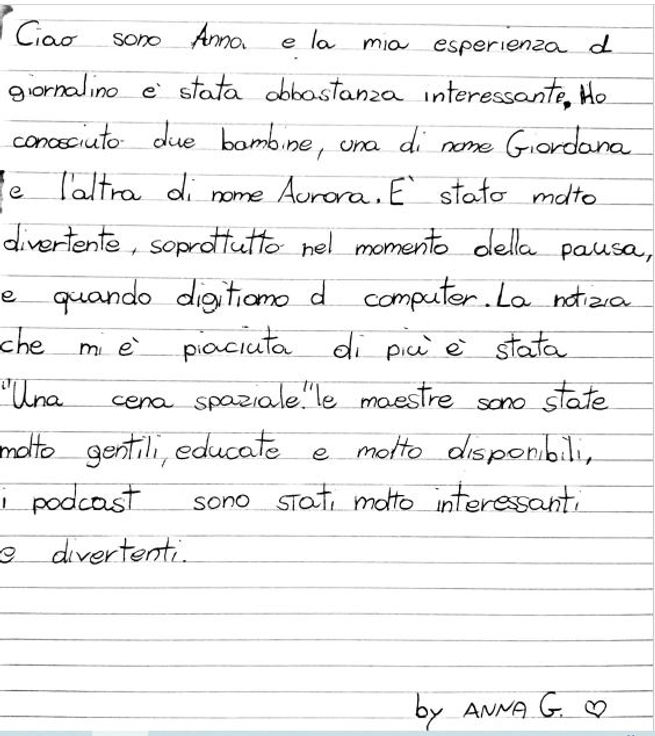 Ciao sono Anna e la mia esperienza al
giornalino è stata abbastanza interessante. Ho
conosciuto due bambine, una di nome Giordana
e l'altra di nome Aurora. E' stato molto
divertente, soprattutto nel momento della pausa,
e quando digitiamo al computer. La notizia
che mi è piaciuta di più è stata
"Una cena spaziale." le maestre sono state
molto gentili, educate e molto disponibili,
i podcast sono stati molto interessanti
e divertenti.
by ANNA G. ♡